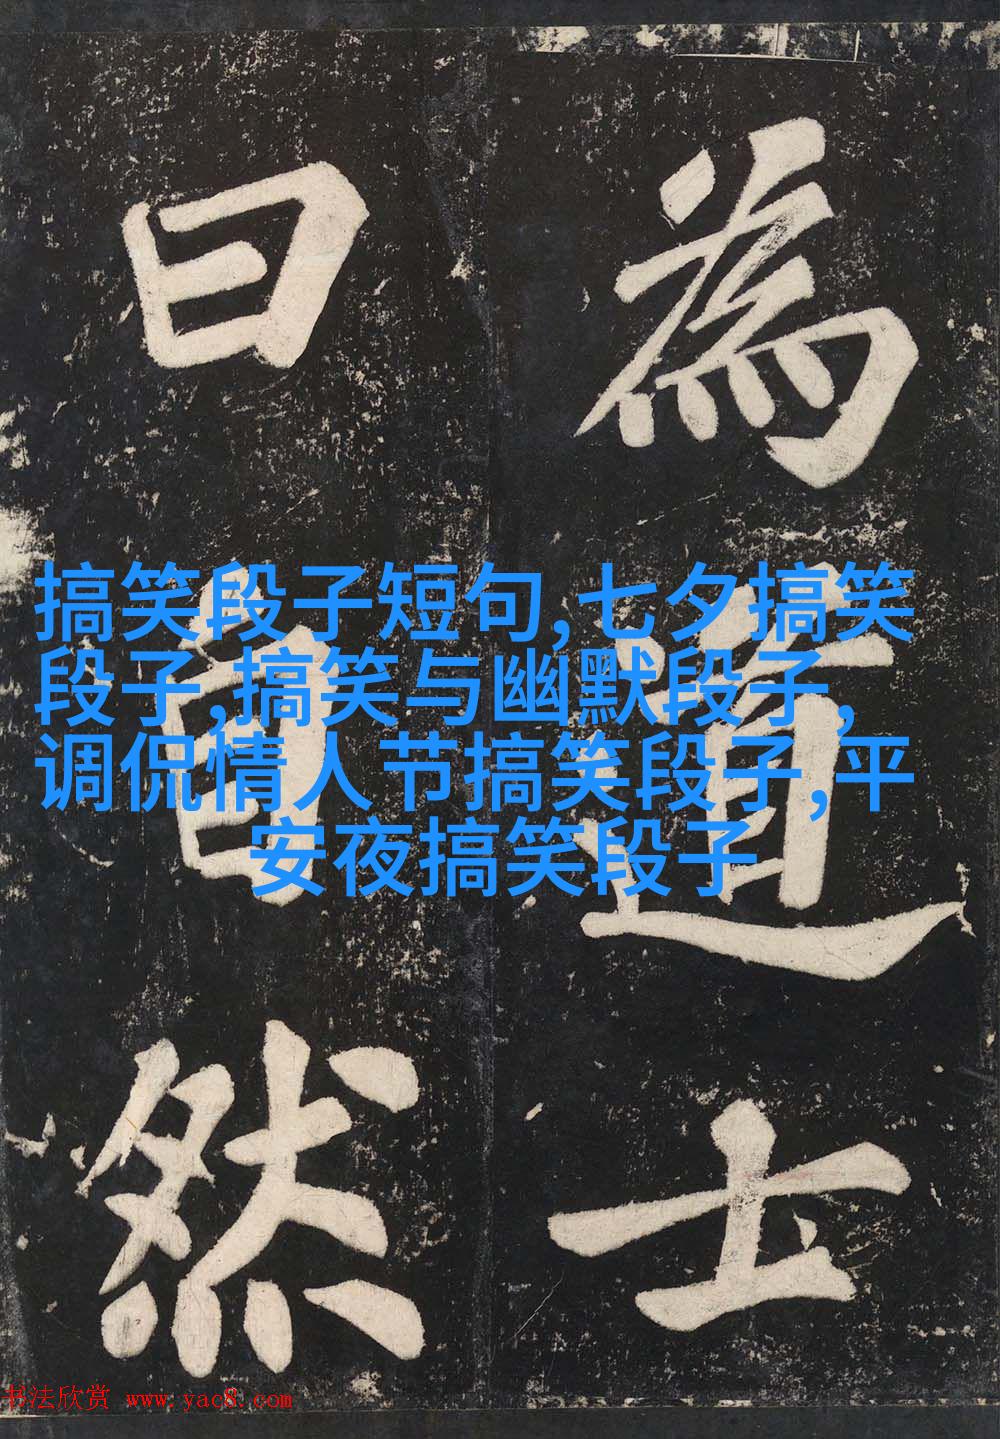 為道士
曰自然
搞笑段子短句,七夕搞笑
段子,搞笑与幽默段子,
调侃情人节搞笑段子,平
安夜搞笑段子
书法欣赏 www.yac8.com